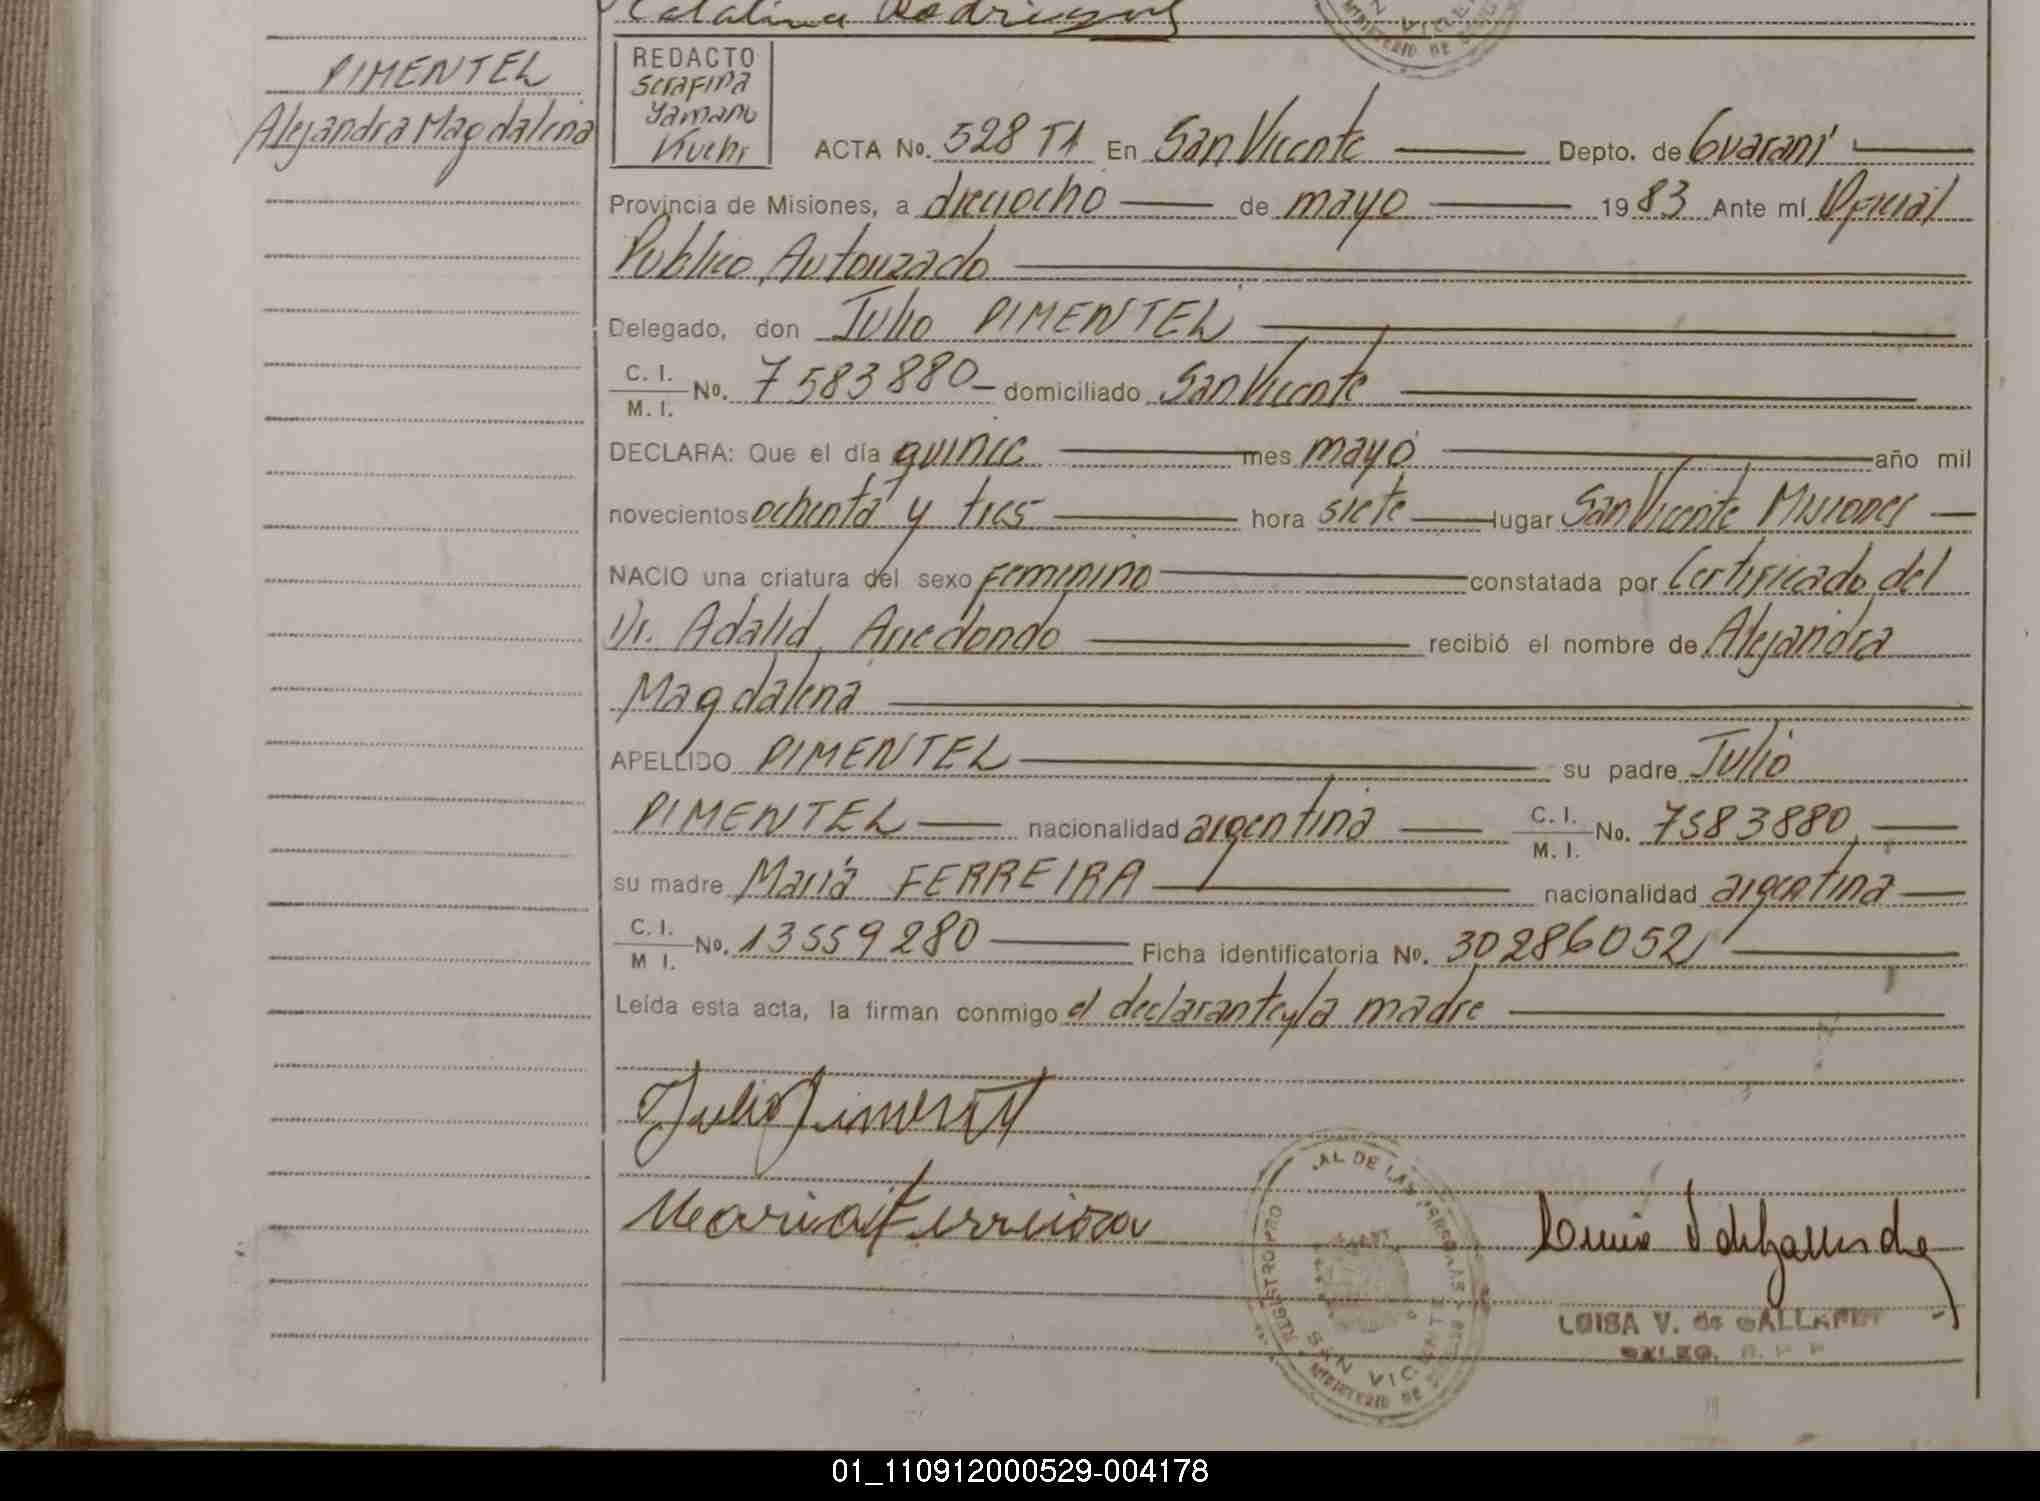 Catalina Rodriguez
PIMENTEL
Alejandra Magdalena
REDACTO
Serafina
Yamano
Kuchi
ACTA No. 528 T1 En San Vicente Depto. de Guaraní
Provincia de Misiones, a dieciocho de mayo 1983 Ante mí Oficial
Publico Autorizado
Delegado, don Julio PIMENTEL
C. I.
M. I. No. 7583880 domiciliado San Vicente
DECLARA: Que el día quince mes mayo año mil
novecientos ochenta y tres hora siete lugar San Vicente Misiones
NACIO una criatura del sexo femenino constatada por Certificado del
Dr. Adalid Arredondo recibió el nombre de Alejandra
Magdalena
APELLIDO PIMENTEL su padre Julio
PIMENTEL nacionalidad argentina C. I. M. I. No. 7583880
su madre María FERREIRA nacionalidad argentina
C. I.
M I. No. 13559280 Ficha identificatoria No. 30286052
Leída esta acta, la firman conmigo el declarante y la madre
Julio Pimentel
Maria Ferreira
REGISTRO PRO AL DE LAS PERSONAS
SAN VICENTE
MINISTERIO DE
LUISA V. de GALLARDO
01_110912000529-004178